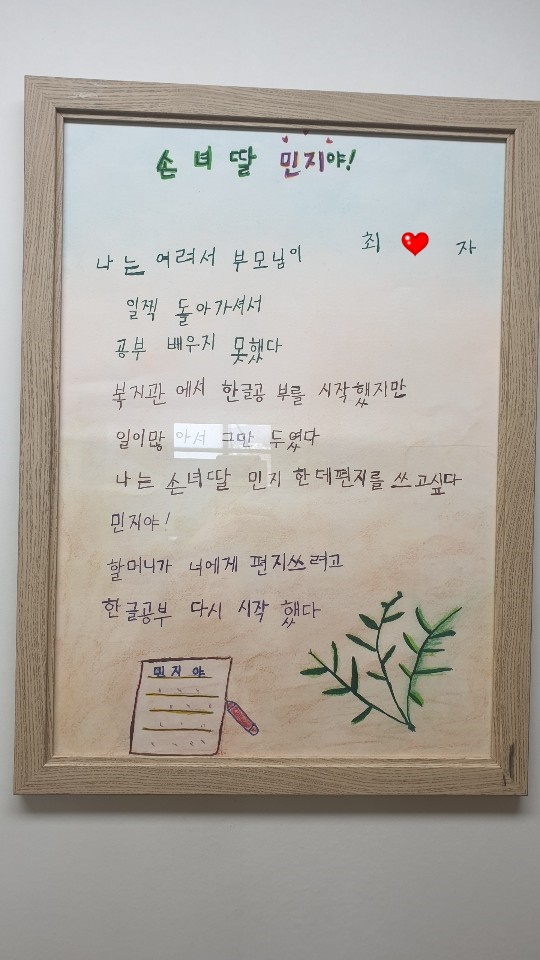 손녀딸 민지야!
최 ❤ 자
나는 여려서 부모님이
일찍 돌아가셔서
공부 배우지 못했다
복지관 에서 한글공 부를 시작했지만
일이많 아서 그만 두였다
나는 손녀딸 민지 한데편지를 쓰고싶다
민지야!
할머니가 녀에게 편지쓰려고
한글공부 다시 시작 했다
민지야